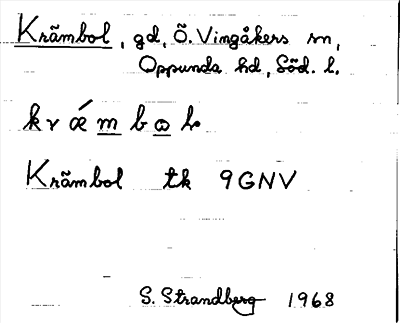 Krãmbol, gd, Õ. Vingåkers sn,
Oppunda hd, Söd. l.
kvǽmbɷl
Krãmbol tk 9GNV
S. Strandberg 1968